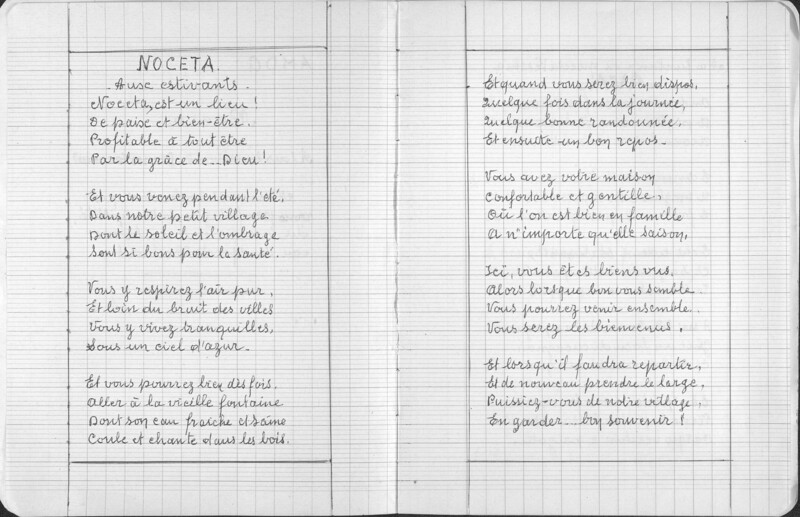 NOCETA.
Aux estivants.
Noceta, est un lieu !
De paix et bien-être.
Profitable à tout être
Par la grâce de.. Dieu !
Et vous venez pendant l'été,
Dans notre petit village
Dont le soleil et l'ombrage
Sont si bons pour la santé.
Vous y respirez l'air pur,
Et loin du bruit des villes
Vous y vivez tranquilles,
Sous un ciel d'azur.
Et vous pourrez bien dès fois,
Aller à la vieille fontaine
Dont son eau fraîche et saine
Coule et chante dans les bois.
Et quand vous serez bien dispos,
Quelque fois dans la journée,
Quelque bonne randounnée,
Et ensuite un bon repos.
Vous avez votre maison
Confortable et gentille,
Où l'on est bien en famille
A n'importe qu'elle saison.
Ici, vous êtes biens vus,
Alors lorsque bon vous semble
Vous pourrez venir ensemble
Vous serez les bienvenus.
Et lorsqu'il faudra repartir,
Et de nouveau prendre le large,
Puissiez-vous de notre village,
En garder... bon souvenir !